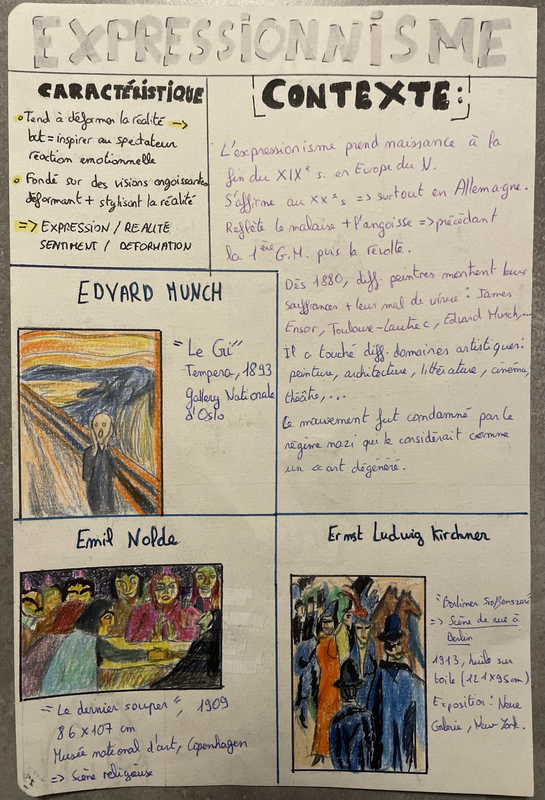 EXPRESSIONNISME
CARACTÉRISTIQUE
Tend à déformer la réalité →
but = inspirer au spectateur
réaction emotionnelle
Fondé sur des visions angoissantes
déformant + stylisant la réalité
=> EXPRESSION / REALITÉ
SENTIMENT / DEFORMATION
CONTEXTE:
L'expressionisme prend naissance à la
fin du XIXe s. en Europe du N.
S'affirme au XXe s => surtout en Allemagne.
Reflète le malaise + l'angoisse => précédant
la 1ère G.M. puis la révolte.
Dès 1880, diff. peintres montrent leurs
souffrances + leur mal de vivre : James
Ensor, Toulouse-Lautrec, Edvard Munch,...
Il a touché diff. domaines artistiques:
peinture, architecture, littérature, cinéma,
théâtre,...
Le mouvement fut condamné par le
régime nazi qui le considérait comme
un « art dégénéré.
EDVARD MUNCH
"Le Cri"
Tempera, 1893
Gallery Nationale
d'Oslo
Emil Nolde
"Le dernier souper", 1909
86 x 107 cm
Musée national d'art, Copenhagen
=> Scène religieuse
Ernst Ludwig Kirchner
"Berliner
=> Scène de rue à
Berlin
1913, huile sur
toile (121 x 95 cm)
Exposition: Neue
Galerie, New York.